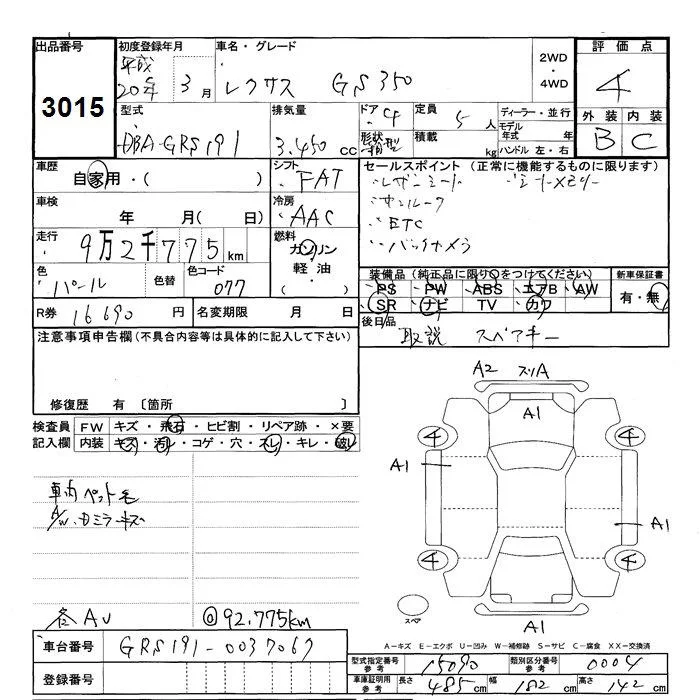 出品番号
3015
初度登録年月
平成
20年 3月
車名・グレード
レクサス GS350
2WD
・
4WD
評価点
4
外装 内装
B C
型式
DBA-GRS191
排気量
3.450 cc
ドア
4
形状
箱型
定員
5人
積載 kg
ディーラー・並行
モデル
年式 年
ハンドル 左・右
車歴
自家用・( )
シフト
FAT
車検
年 月( 日)
冷房
AAC
走行
9万2千775km
燃料
ガソリン
・
軽油
・
色
パール
色替
色コード
077
R券 16690円
名変期限 月 日
セールスポイント (正常に機能するものに限ります)
レザーシート シートメモリー
サンルーフ
ETC
バックカメラ
装備品 (純正品に限り○をつけてください)
PS PW ABS エアB AW
SR ナビ TV カワ
新車保証書
有・無
後日品
取説 スペアキー
注意事項申告欄(不具合内容等は具体的に記入して下さい)
修復歴 有 〔箇所 〕
検査員
記入欄
FW キズ・飛石・ヒビ割・リペア跡・×要
内装 キズ・汚レ・コゲ・穴・スレ・キレ・破レ
車内ペット毛
A/W・ミラーキズ
各AU
◎92.775km
A2 スリA
A1
4 4
A1
A1
4 4
スペア
A1
A-キズ E-エクボ U-凹み W-補修跡 S-サビ C-腐食 XX-交換済
車台番号 GRS191-0037067
登録番号
型式指定番号
参考
15090
類別区分番号
参考
0004
車庫証明用
参考
長さ 485cm 幅 182cm 高さ 142cm